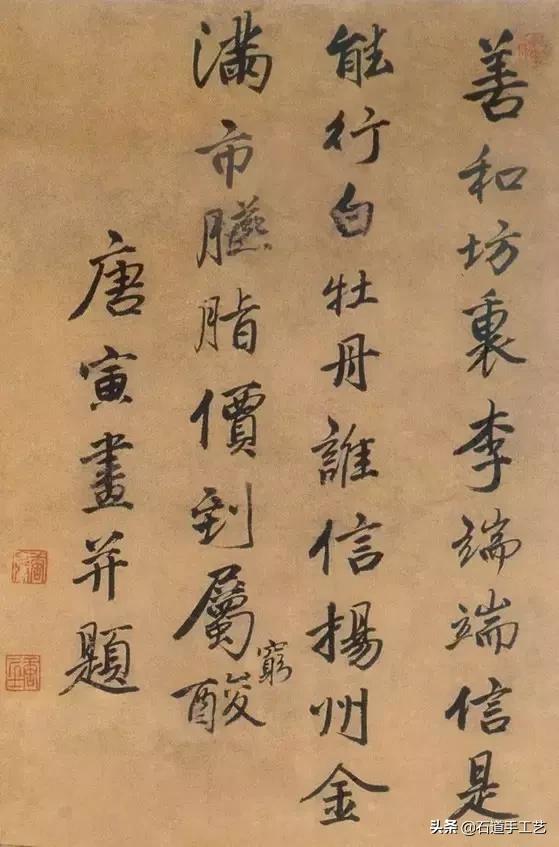 善和坊裏李端端信是
能行白牡丹誰信揚州金
滿市臙脂價到屬窮酸
唐寅畫并題
头条 @石道手工艺